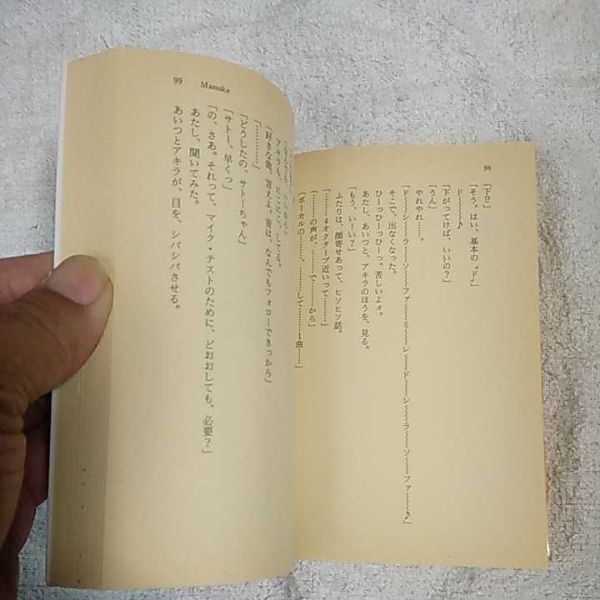 98
「下？」
「そう。はい、基本の〝ド〟」
ド～～～～♪
「下がってけば、いいの？」
「うん」
やれやれ……。
「ド～～シ～～ラ～～ソ～～ファ～～ミ～～レ～～ド～～シ～～ラ～～ソ～～ファ～～♪
そこで、出なくなった。
ひーっひーっひーっ。苦しいよォ。
あたし、あいつと、アキラのほうを、見る。
「もう、いーい？」
ふたりは、顔寄せあって、ヒソヒソ話。
「………4オクターブ近いって………」
「………の声が、………で………から」
「ボーカルの……、………して………1曲……」
99 Manuke
アキラも、にこにこしてる。
「好きな曲、言えよ。音は、なんでもフォローできっから」
「…………」
「どうしたの、サトーちゃん」
「サトー、早くっ」
「の、さあ。それって、マイク・テストのために、どおおしても、必要？」
あたし、聞いてみた。
あいつとアキラが、目を、シパシパさせる。